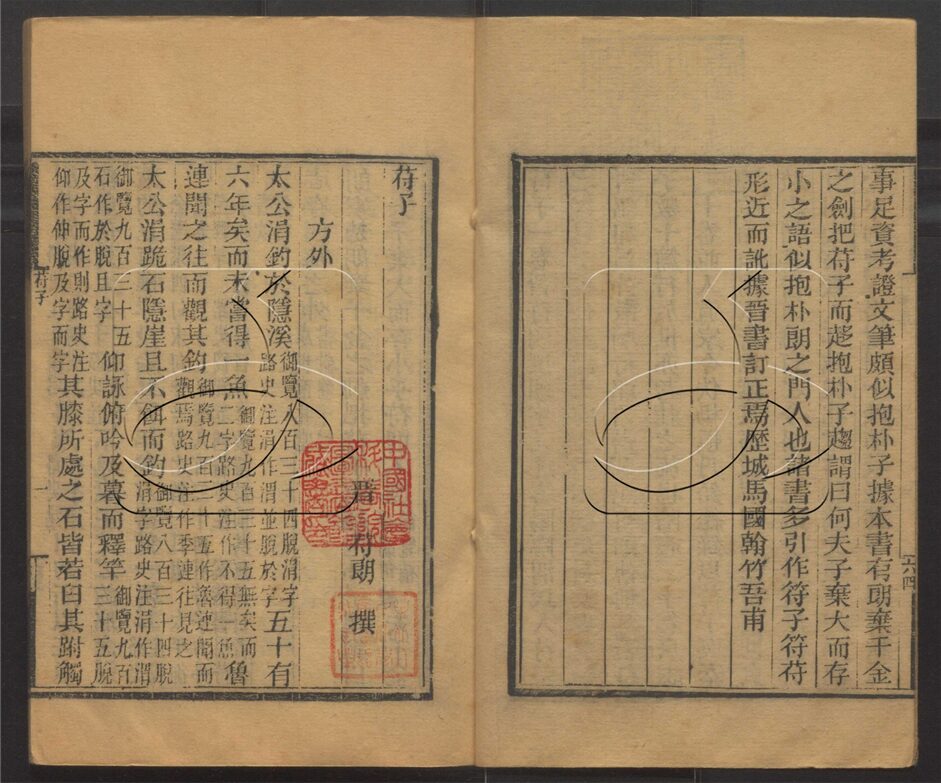 事足資考證文筆頗似抱朴子據本書有朗棄千金
之劍把苻子而趍抱朴子趨謂曰何夫子棄大而存
小之語似抱朴朗之門人也諸書多引作符子符苻
形近而訛據晉書訂正焉歷城馬國翰竹吾甫
六四
苻子
晉苻朗撰
方外
太公涓釣於隱溪御覽八百三十四脫涓字路史注涓作渭並脫於字五十有
六年矣而未嘗得一魚御覽九百三十五無矣而二字路史注作不得一魚魯
連聞之往而觀其釣御覽九百三十五作魯連聞而觀焉路史注作季連往見之
太公涓跪石隱崖且不餌而釣御覽八百三十四脫涓字路史注涓作渭
御覽九百三十五石作於脫且字仰詠俯吟及暮而釋竿御覽九百三十五脫
及字而作則路史注仰作伸脫及字而字其膝所處之石皆若臼其跗觸
苻子
一
中國社會